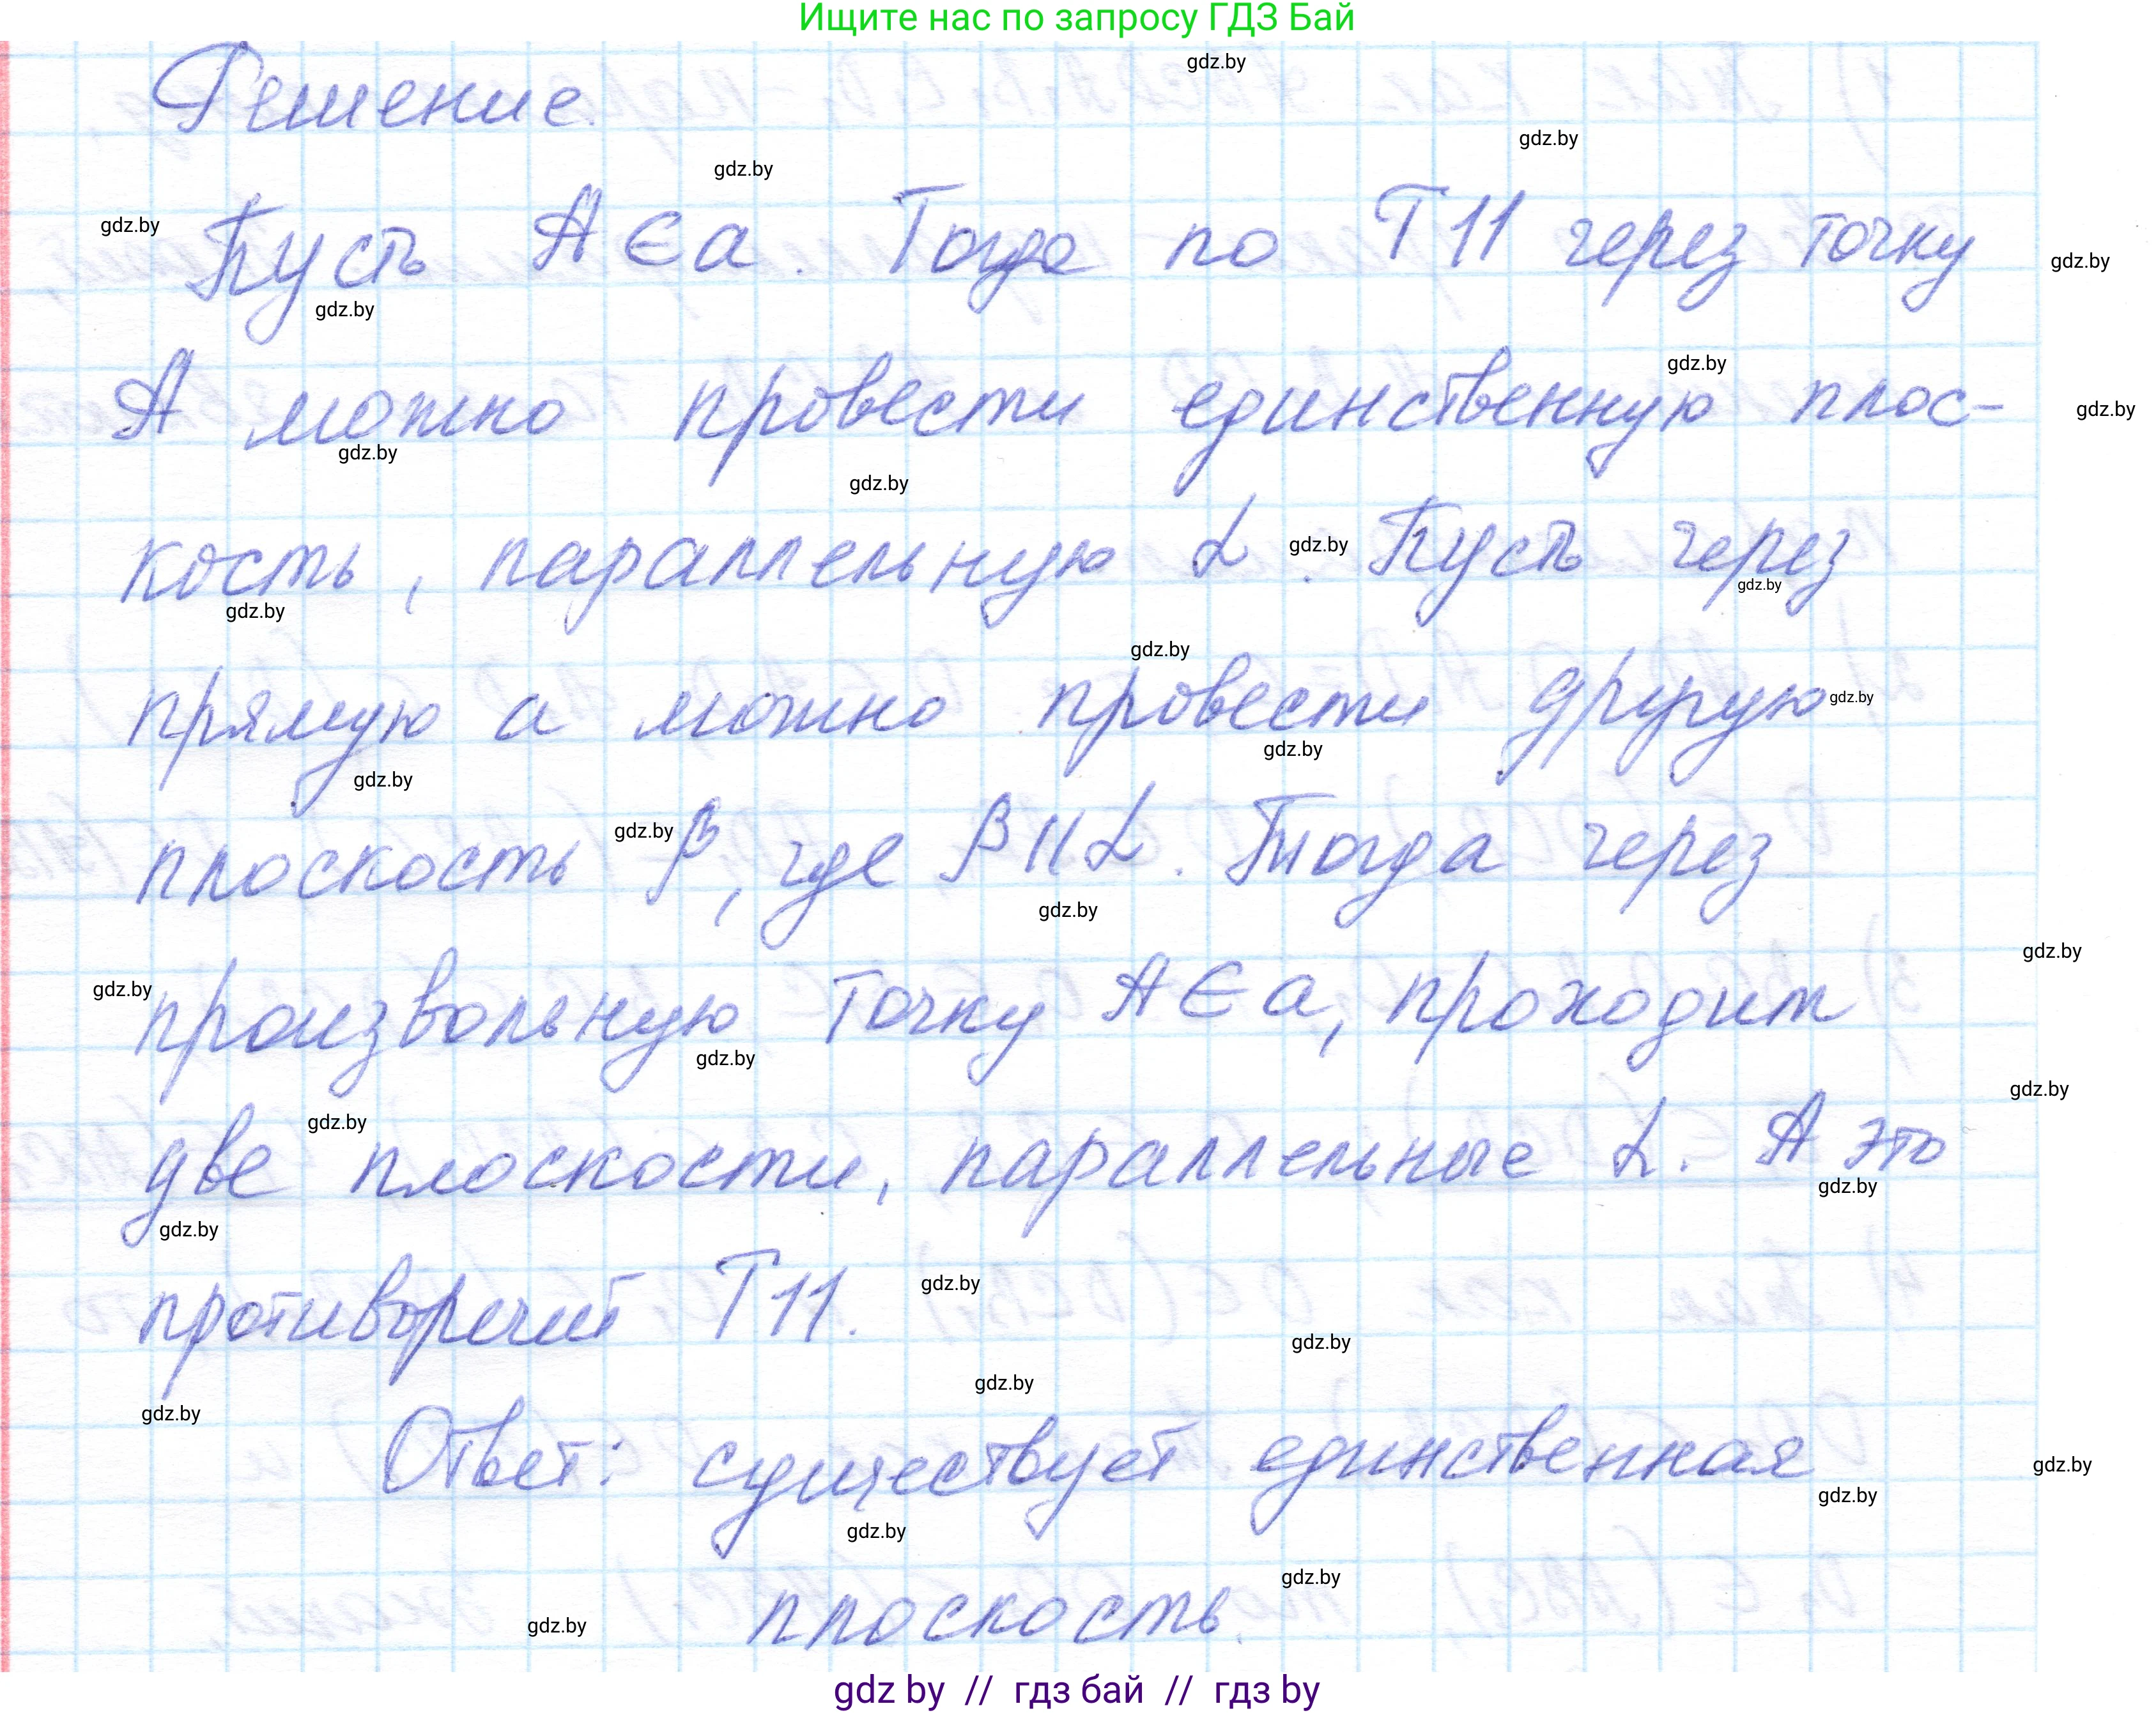 Ищите нас по запросу ГДЗ Бай
gdz.by
Решение.
gdz.by
gdz.by
gdz.by
Пусть A ∈ a. Тогда по Т 11 через точку
gdz.by
gdz.by
gdz.by
А можно провести единственную плос-
gdz.by
gdz.by
gdz.by
кость, параллельную α. Пусть через
gdz.by
gdz.by
gdz.by
gdz.by
прямую а можно провести другую
gdz.by
gdz.by
gdz.by
плоскость β, где β || α. Тогда через
gdz.by
gdz.by
gdz.by
произвольную точку A ∈ a, проходит
gdz.by
gdz.by
gdz.by
gdz.by
две плоскости, параллельные α. А это
gdz.by
gdz.by
противоречит Т 11.
gdz.by
gdz.by
gdz.by
gdz.by
Ответ: существует единственная
gdz.by
gdz.by
gdz.by
gdz.by
плоскость.
gdz.by
gdz by // гдз бай // гдз by